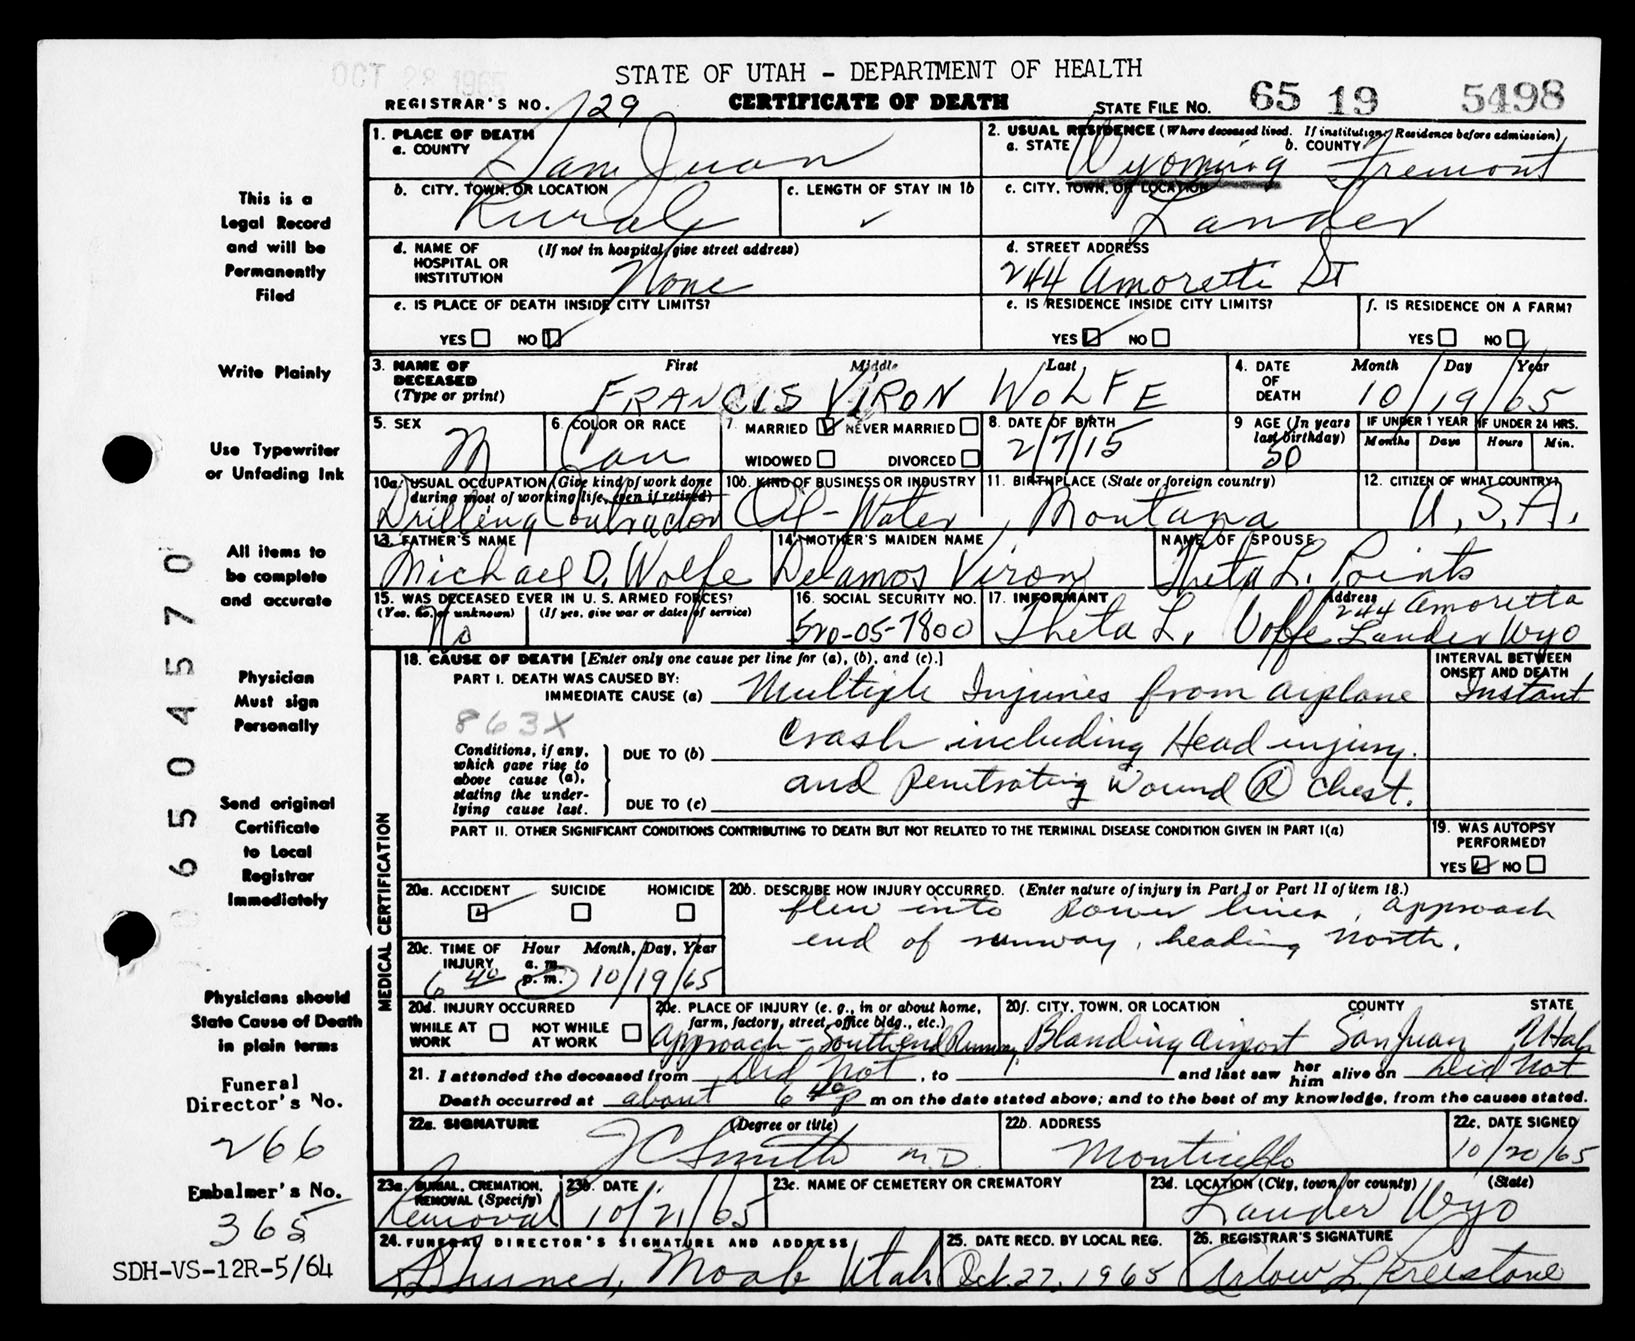 OCT 28 1965
STATE OF UTAH - DEPARTMENT OF HEALTH
REGISTRAR'S NO. 129 CERTIFICATE OF DEATH STATE FILE NO. 65 19 5498
1. PLACE OF DEATH
a. COUNTY San Juan
2. USUAL RESIDENCE (Where deceased lived. If institution, Residence before admission)
a. STATE Wyoming b. COUNTY Fremont
b. CITY, TOWN, OR LOCATION Rural
c. LENGTH OF STAY IN 1b ✓
c. CITY, TOWN, OR LOCATION Lander
d. NAME OF HOSPITAL OR INSTITUTION (If not in hospital, give street address) None
d. STREET ADDRESS 244 Amoretti St
e. IS PLACE OF DEATH INSIDE CITY LIMITS?
YES ☐ NO ☑
e. IS RESIDENCE INSIDE CITY LIMITS?
YES ☑ NO ☐
f. IS RESIDENCE ON A FARM?
YES ☐ NO ☐
3. NAME OF DECEASED (Type or print) First Middle Last
FRANCIS VIRON WOLFE
4. DATE OF DEATH Month Day Year
10/19/65
5. SEX M
6. COLOR OR RACE Cau
7. MARRIED ☑ NEVER MARRIED ☐
WIDOWED ☐ DIVORCED ☐
8. DATE OF BIRTH 2/7/15
9 AGE (In years last birthday) 50
IF UNDER 1 YEAR Months Days
IF UNDER 24 HRS. Hours Min.
10a. USUAL OCCUPATION (Give kind of work done during most of working life, even if retired) Drilling Contractor
10b. KIND OF BUSINESS OR INDUSTRY Oil-Water
11. BIRTHPLACE (State or foreign country) Montana
12. CITIZEN OF WHAT COUNTRY? U.S.A.
13. FATHER'S NAME Michael D. Wolfe
14. MOTHER'S MAIDEN NAME Delamos Viron
NAME OF SPOUSE Theta L. Points
15. WAS DECEASED EVER IN U. S. ARMED FORCES?
(Yes, no, or unknown) (If yes, give war or dates of service)
No
16. SOCIAL SECURITY NO. 520-05-7800
17. INFORMANT Theta L. Wolfe Address 244 Amoretta Lander Wyo
18. CAUSE OF DEATH [Enter only one cause per line for (a), (b), and (c).]
INTERVAL BETWEEN ONSET AND DEATH
PART I. DEATH WAS CAUSED BY:
IMMEDIATE CAUSE (a) Multiple Injuries from airplane Instant
863X
Conditions, if any, which gave rise to above cause (a), stating the underlying cause last.
DUE TO (b) crash including Head injury.
DUE TO (c) and penetrating wound Ⓡ Chest.
PART II. OTHER SIGNIFICANT CONDITIONS CONTRIBUTING TO DEATH BUT NOT RELATED TO THE TERMINAL DISEASE CONDITION GIVEN IN PART I(a)
19. WAS AUTOPSY PERFORMED?
YES ☑ NO ☐
MEDICAL CERTIFICATION
20a. ACCIDENT ☑ SUICIDE ☐ HOMICIDE ☐
20b. DESCRIBE HOW INJURY OCCURRED. (Enter nature of injury in Part I or Part II of item 18.)
flew into power lines, approach
end of runway, heading North.
20c. TIME OF INJURY Hour a. m. p. m. Month, Day, Year
6 40 10/19/65
20d. INJURY OCCURRED
WHILE AT WORK ☐ NOT WHILE AT WORK ☐
20e. PLACE OF INJURY (e. g., in or about home, farm, factory, street, office bldg., etc.)
Approach - South end Runway
20f. CITY, TOWN, OR LOCATION COUNTY STATE
Blanding Airport San Juan Utah
21. I attended the deceased from Did Not, to and last saw her him alive on Did Not
Death occurred at about 6 40 p m on the date stated above; and to the best of my knowledge, from the causes stated.
22a. SIGNATURE (Degree or title) J C Smith M.D.
22b. ADDRESS Monticello
22c. DATE SIGNED 10/20/65
23a. BURIAL, CREMATION, REMOVAL (Specify) Removal
23b. DATE 10/21/65
23c. NAME OF CEMETERY OR CREMATORY
23d. LOCATION (City, town, or county) (State) Lander Wyo
24. FUNERAL DIRECTOR'S SIGNATURE AND ADDRESS
Moab Utah
25. DATE RECD. BY LOCAL REG. Oct. 27, 1965
26. REGISTRAR'S SIGNATURE
This is a
Legal Record
and will be
Permanently
Filed
Write Plainly
Use Typewriter
or Unfading Ink
All items to
be complete
and accurate
Physician
Must sign
Personally
Send original
Certificate
to Local
Registrar
Immediately
Physicians should
State Cause of Death
in plain terms
Funeral
Director's No.
266
Embalmer's No.
365
SDH-VS-12R-5/64
6504570